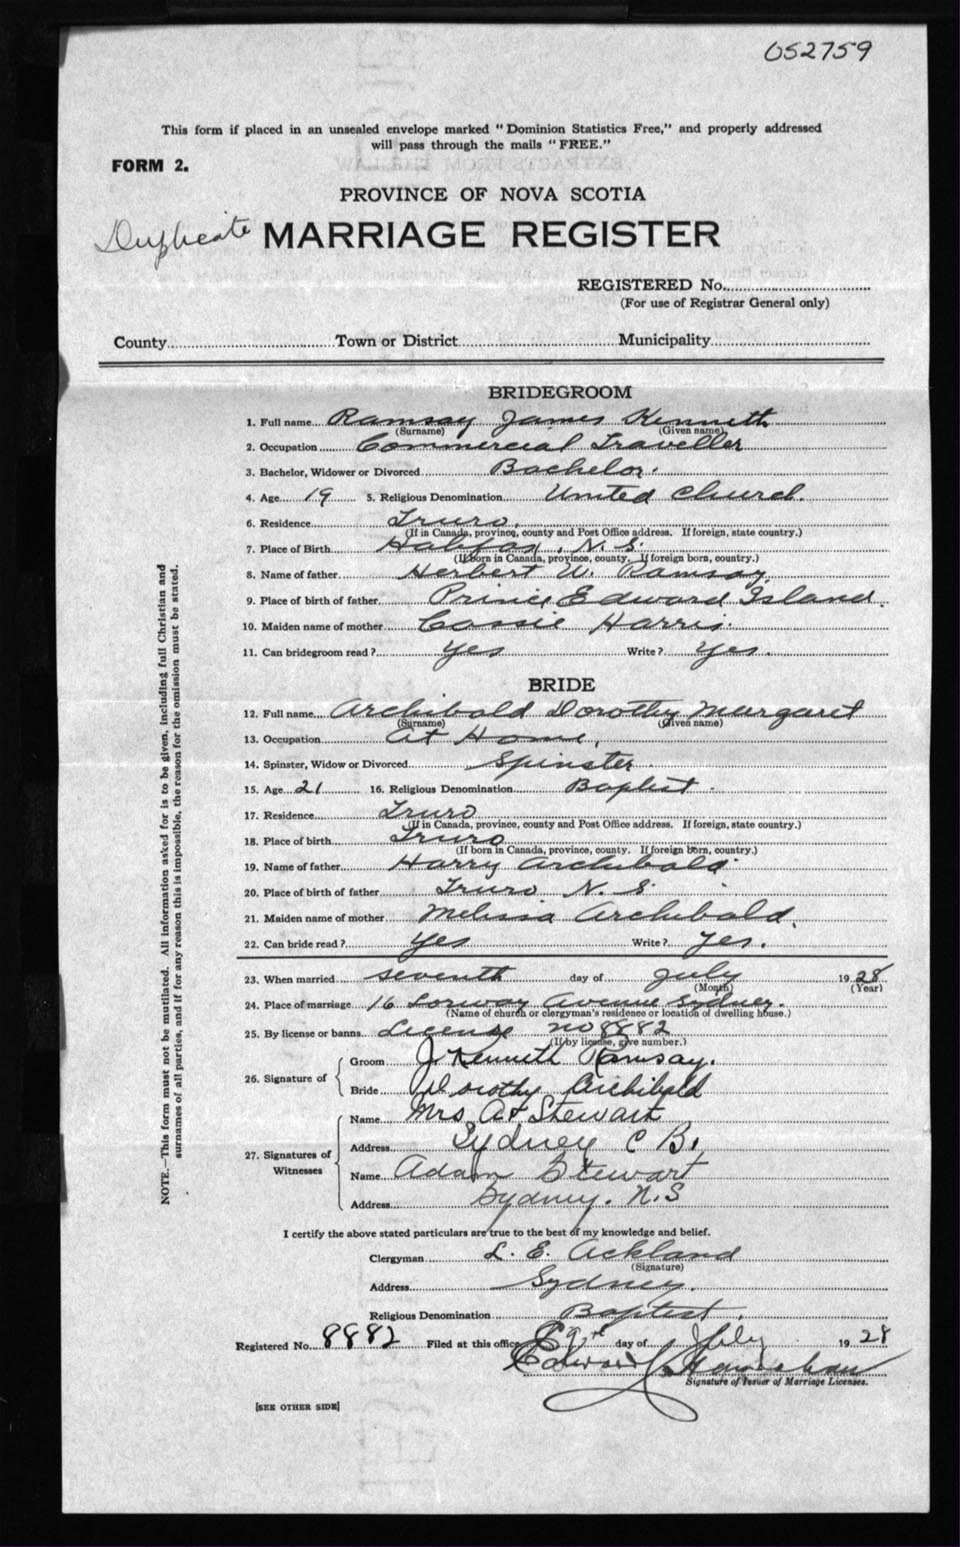 052759
This form if placed in an unsealed envelope marked "Dominion Statistics Free," and properly addressed
will pass through the mails "FREE."
FORM 2.
PROVINCE OF NOVA SCOTIA
Duplicate MARRIAGE REGISTER
REGISTERED No.
(For use of Registrar General only)
County Town or District Municipality
BRIDEGROOM
1. Full name Ramsay James Kenneth
(Surname) (Given name)
2. Occupation Commercial Traveller
3. Bachelor, Widower or Divorced Bachelor.
4. Age 19 5. Religious Denomination United Church.
6. Residence Truro,
(If in Canada, province, county and Post Office address. If foreign, state country.)
7. Place of Birth Halifax, N. S.
(If born in Canada, province, county. If foreign born, country.)
8. Name of father Herbert W. Ramsay
9. Place of birth of father Prince Edward Island.
10. Maiden name of mother Cassie Harris.
11. Can bridegroom read? Yes Write? Yes.
BRIDE
12. Full name Archibald Dorothy Margaret
(Surname) (Given name)
13. Occupation At Home,
14. Spinster, Widow or Divorced Spinster
15. Age 21 16. Religious Denomination Baptist.
17. Residence Truro
(If in Canada, province, county and Post Office address. If foreign, state country.)
18. Place of birth Truro
(If born in Canada, province, county. If foreign born, country.)
19. Name of father Harry Archibald
20. Place of birth of father Truro N. S.
21. Maiden name of mother Melissa Archibald.
22. Can bride read? Yes Write? Yes.
23. When married seventh day of July 1928
(Month) (Year)
24. Place of marriage 16 Lorway Avenue Sydney.
(Name of church or clergyman's residence or location of dwelling house.)
25. By license or banns License no 8882
(If by license, give number.)
26. Signature of
Groom J. Kenneth Ramsay.
Bride Dorothy Archibald
27. Signatures of Witnesses
Name Mrs. A. Stewart
Address Sydney C B.
Name Adam Stewart
Address Sydney. N.S
I certify the above stated particulars are true to the best of my knowledge and belief.
Clergyman L. E. Ackland
(Signature)
Address Sydney.
Religious Denomination Baptist.
Registered No. 8882 Filed at this office 9th day of July 1928
Edward
Signature of Issuer of Marriage Licenses.
[SEE OTHER SIDE]
NOTE.—This form must not be mutilated. All information asked for is to be given, including full Christian and
surnames of all parties, and if for any reason this is impossible, the reason for the omission must be stated.